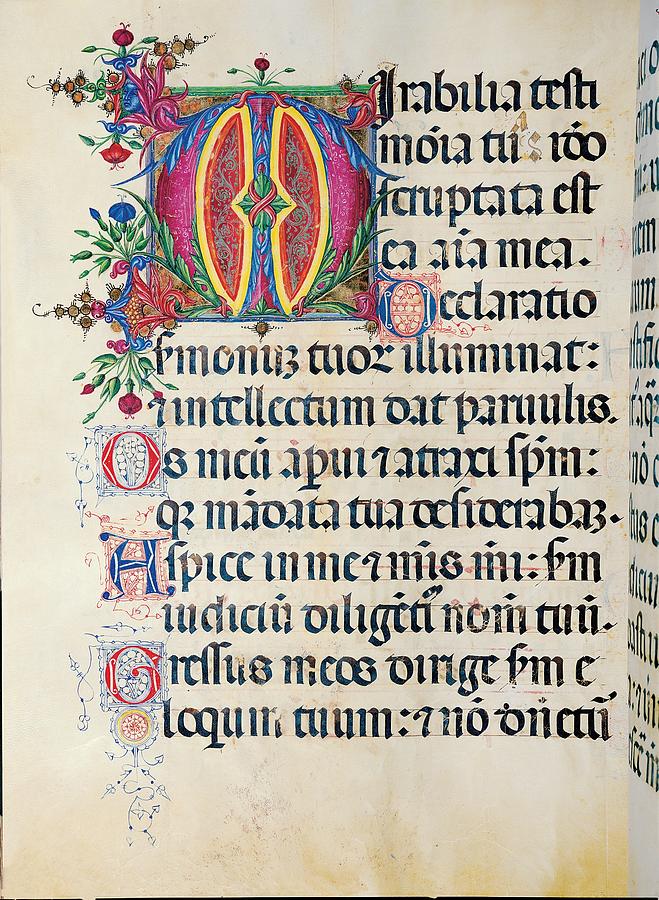 Mirabilia testi
moīa tūs: iō̄o
scruptata est
ea aīa mea.
Declaratio
ſmonuȝ tuoꝝ illuminat:
⁊ intellectum dat paruulis.
Os meū apꝑui ⁊ atraxi ſpm̄:
qꝛ mādata tua desiderabaȝ.
Aspice in me ⁊ mis̄ m̄i: ſm̄
iudiciū diligētiū nom̄ tuū.
Gressus meos dirige ſm̄ e
loquium tuum: ⁊ nō dn̄etū